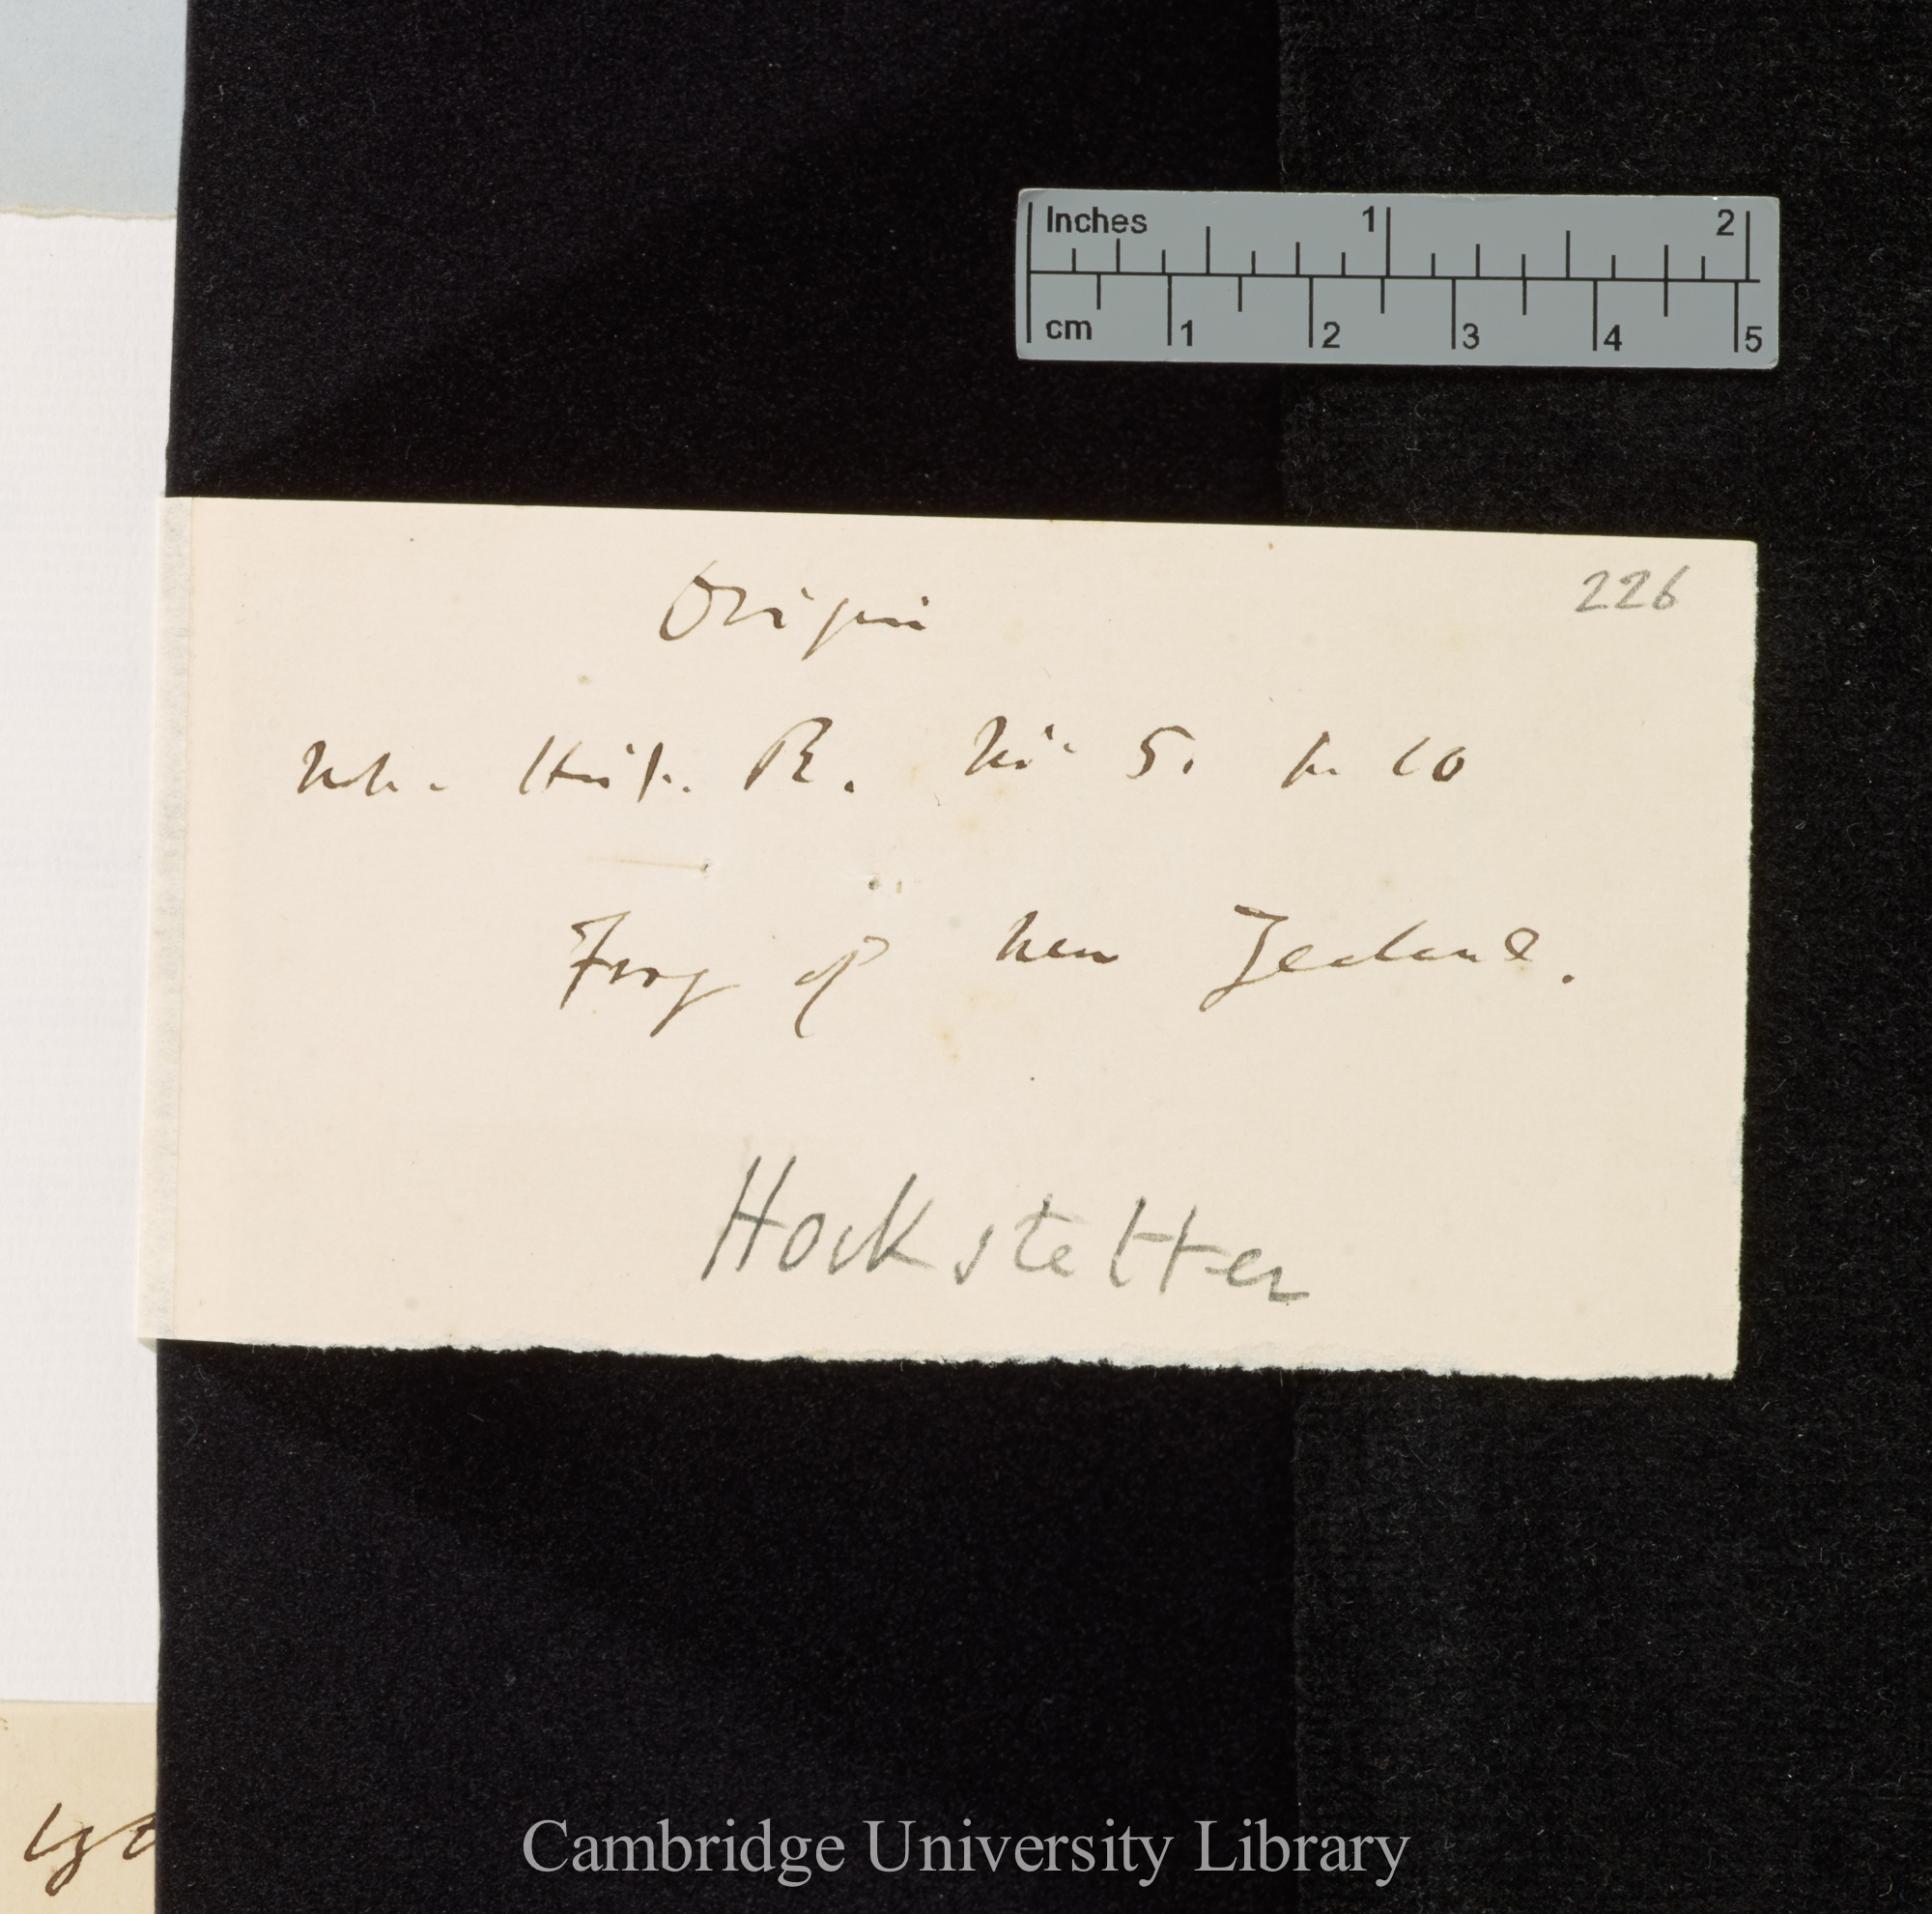 Inches 1 2
cm 1 2 3 4 5
226
Origin
Nat. Hist. R. No. 5. p. 10
Frog of New Zealand.
Hockstetter
Cambridge University Library